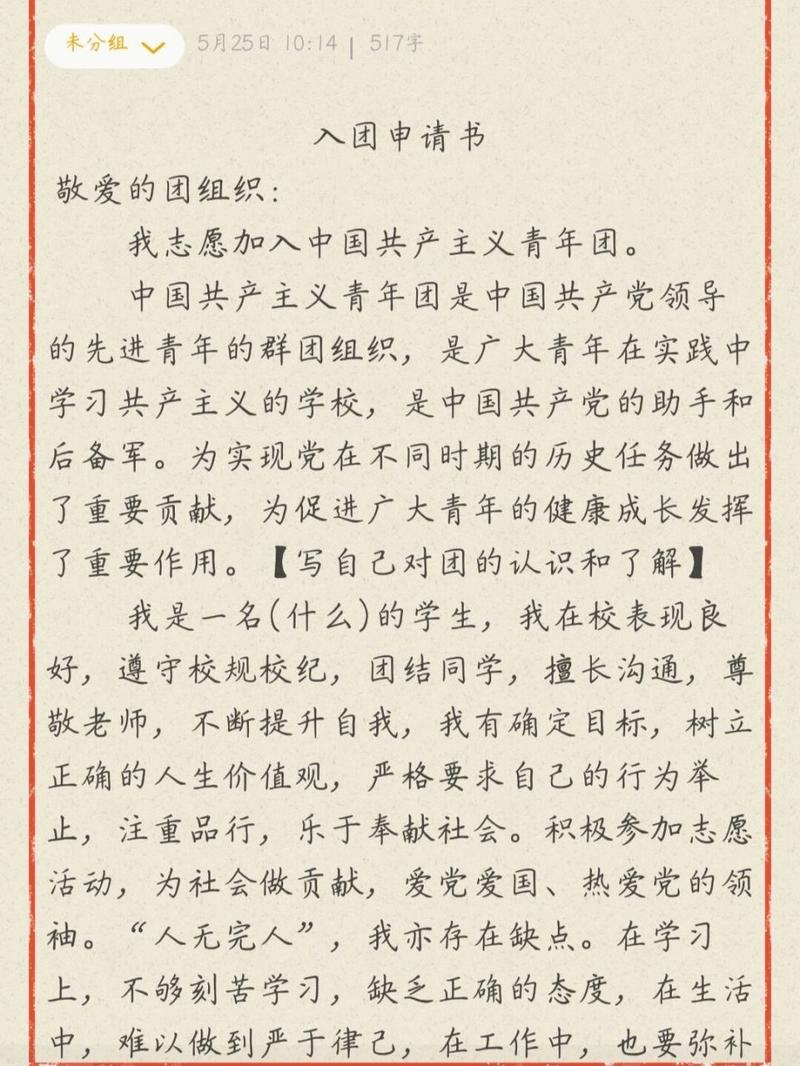 未分组
5月25日 10:14 | 517字
入团申请书
敬爱的团组织：
我志愿加入中国共产主义青年团。
中国共产主义青年团是中国共产党领导
的先进青年的群团组织，是广大青年在实践中
学习共产主义的学校，是中国共产党的助手和
后备军。为实现党在不同时期的历史任务做出
了重要贡献，为促进广大青年的健康成长发挥
了重要作用。【写自己对团的认识和了解】
我是一名(什么)的学生，我在校表现良
好，遵守校规校纪，团结同学，擅长沟通，尊
敬老师，不断提升自我，我有确定目标，树立
正确的人生价值观，严格要求自己的行为举
止，注重品行，乐于奉献社会。积极参加志愿
活动，为社会做贡献，爱党爱国、热爱党的领
袖。“人无完人”，我亦存在缺点。在学习
上，不够刻苦学习，缺乏正确的态度，在生活
中，难以做到严于律己，在工作中，也要弥补